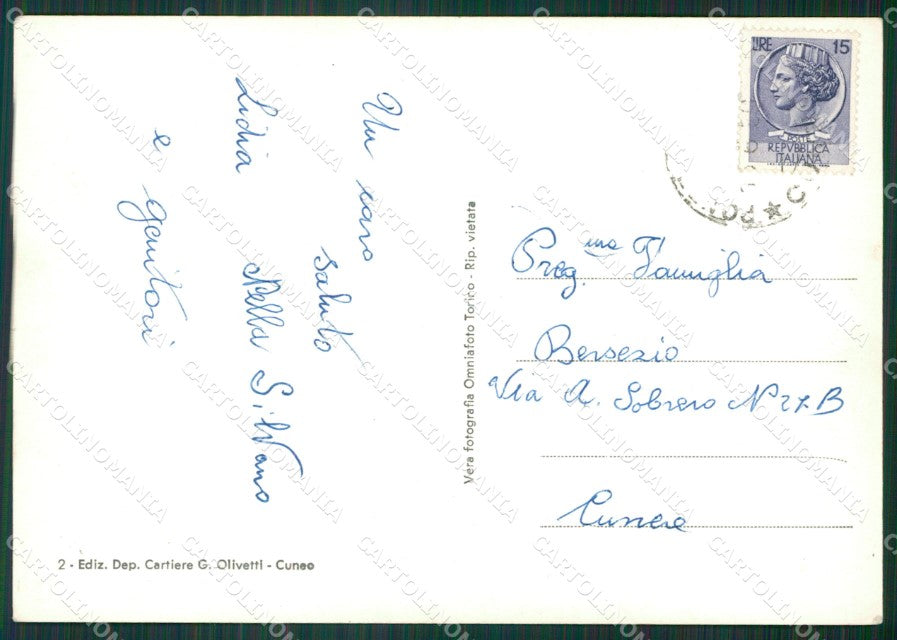 Un caro
saluto
Lidia Nella Silvano
e genitori
2 - Ediz. Dep. Cartiere G. Olivetti - Cuneo
Vera fotografia Omniafoto Torino - Rip. vietata
LIRE 15
POSTE
REPVBBLICA
ITALIANA
Preg.ma Famiglia
Bersezio
Via A. Sobrero N 27 B
Cuneo
CARTOLINOMANIA